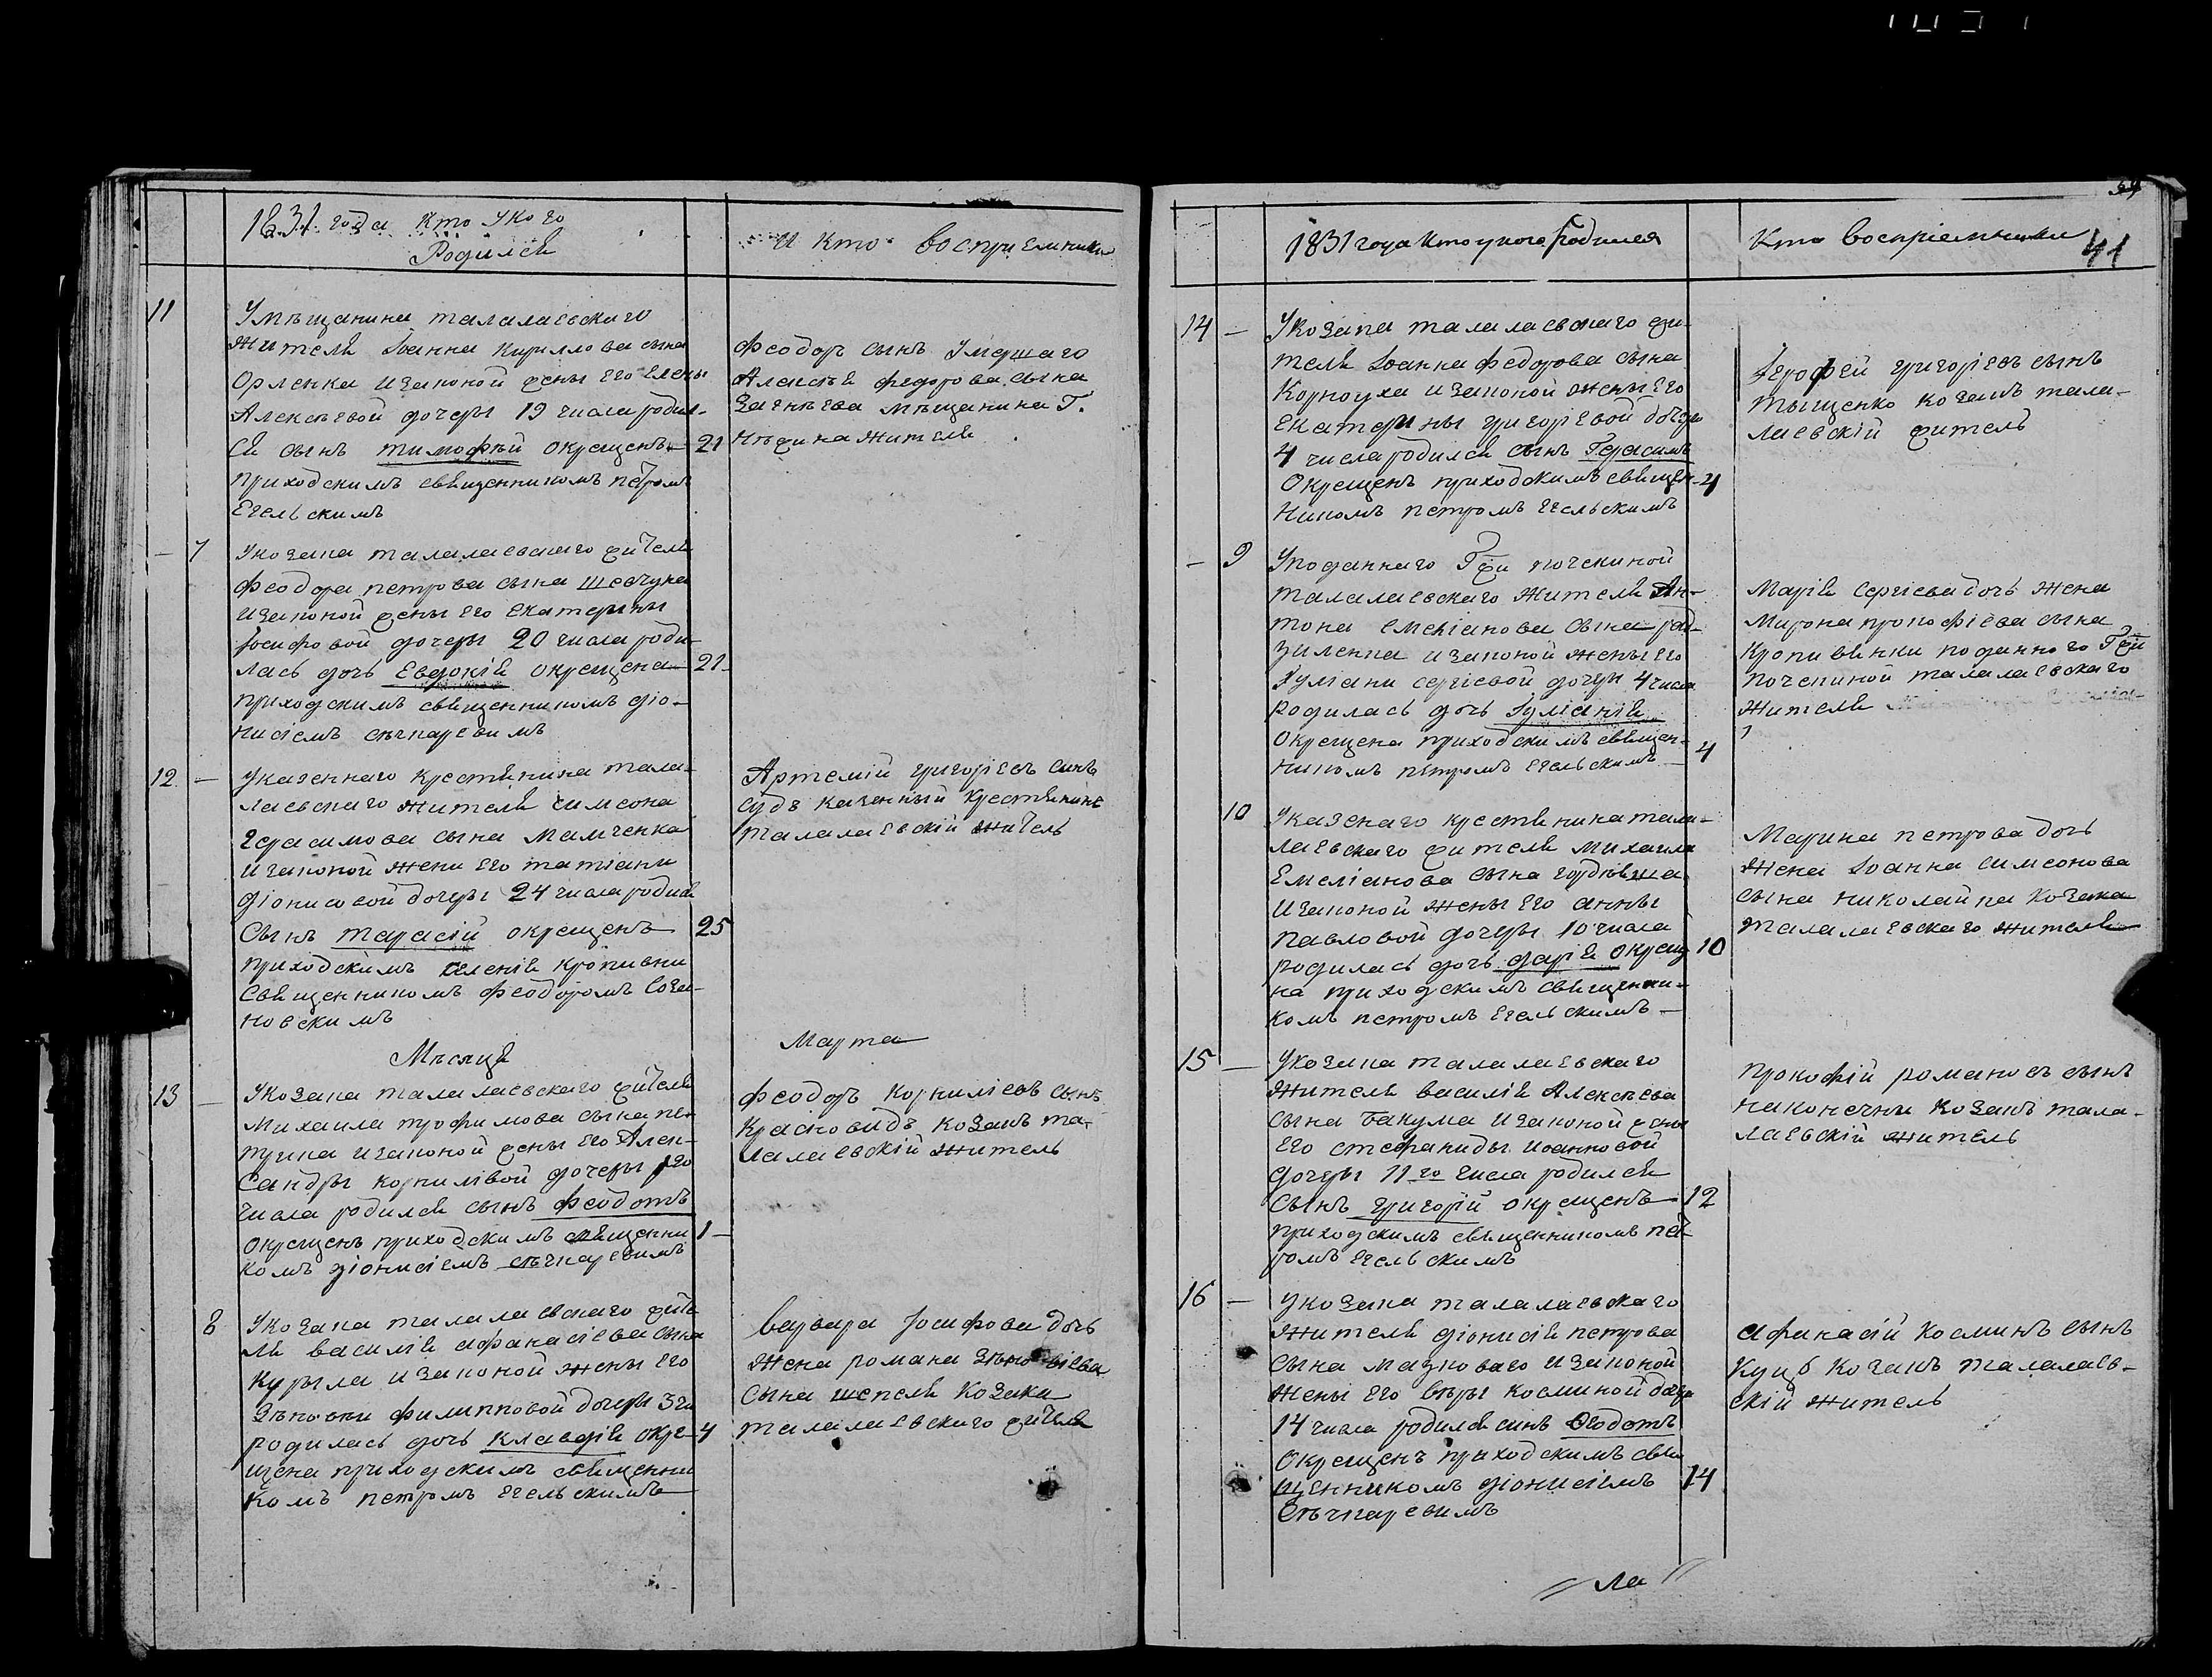 1831 года кто у кого
Родился
и кто воспріемники
11
У мѣщанина талалаевского
жителя Іоанна Кирилова сына
Орленка и законой жены его Елены
Алексѣевой дочеры 19 числа родил-
ся сынъ тимофѣй окрещенъ 21
приходскимъ священникомъ петромъ
Егельскимъ
феодоръ сынъ умершаго
Алексѣя федорова сына
мѣщанина Г.
Нѣжина жителя
7
У козака талалаевскаго жителя
феодора петрова сына шевчука
и законой жены его екатерыны
Іосифовой дочеры 20 числа роди-
лась дочь Евдокія окрещена 21
приходскимъ священникомъ діо-
нисіемъ сѣчкаревимъ
12 —
У казеннаго крестянина тала-
лаевскаго жителя симеона
герасимова сына мамченка
и законой жени его татіани
діонисовой дочеры 24 числа родился
сынъ тарасій окрещенъ 25
приходскимъ селенія кропивни
священникомъ феодоромъ
новскимъ
Артемій григоріевъ синъ
судъ казенный крестянинъ
талалаевскій житель
Мѣсяця Марта
13 —
У козака талалаевскаго жителя
михаила трофимова сына пе-
трика и законой жены его Алек-
сандры корнилівой дочеры 1го
числа родился сынъ феодотъ
окрещенъ приходскимъ священни 1 —
комъ діонисіемъ сѣчкаревимъ
феодоръ корниліевъ сынъ
красновидъ козакъ та-
лалаевскій житель
8
У козака талалаевскаго жите
ля василія афанасіева сына
курыла и законой жены его
Зѣновіи филипповой дочеры 3 чи
родилась дочь клавдія окре- 4
щена приходскимъ священни
комъ петромъ егельскимъ
варвара Іосифова дочь
жена романа Зѣновіева
сына шепеля козака
талалаевскаго жителя
39
1831 года кто у кого родился
Кто воспріемники
41
14 —
У козака талалаевскаго жи-
теля Іоанна федорова сына
Корноуха и законой жены его
екатерины григоріевой дочеры
4 числа родился сынъ Герасимъ
окрещенъ приходскимъ священ- 4
никомъ петромъ егельскимъ
Іерофей григоріевъ сынъ
тыщенко козакъ тала-
лаевскій житель
— 9
У поданнаго Гжи почекиной
талалаевскаго жителя Ан-
тона емеліанова сына рад-
зиленка и законой жены его
Іуліани сергіевой дочери 4 числа
родилась дочь Іуліанія
окрещена приходскимъ священ- 4
никомъ петромъ егельскимъ
Марія сергіева дочь жена
мирона прокофіева сына
кропивянки поданного Гжи
почекиной талалаевскаго
жителя
10
У казенаго крестянина тала-
лаевскаго жителя михаила
Емеліанова сына
и законой жены его анны
павловой дочеры 10 числа
родилась дочь дарія окреще 10
на приходскимъ священни-
комъ петромъ егельскимъ —
Марина петрова дочь
жена Іоанна симеонова
сына николайка козака
талалаевскаго жителя
15 —
У козака талалаевскаго
жителя василія Алексѣева
сына бакума и законой жены
его стефаниды иоанновой
дочеры 11го числа родился
сынъ григорій окрещенъ 12
приходскимъ священникомъ пет-
ромъ егельскимъ
прокофій романовъ сынъ
наконечни козакъ тала-
лаевскій житель
16 —
У козака талалаевскаго
жителя діонисія петрова
сына мазноваго и законой
жены его вѣры косминой дочеры
14 числа родился синъ Феодотъ
окрещенъ приходскимъ свя
щенникомъ діонисіемъ 14
Сѣчкаревимъ
афанасій косминъ сынъ
куцъ козакъ талалаев-
скій житель
// ла //